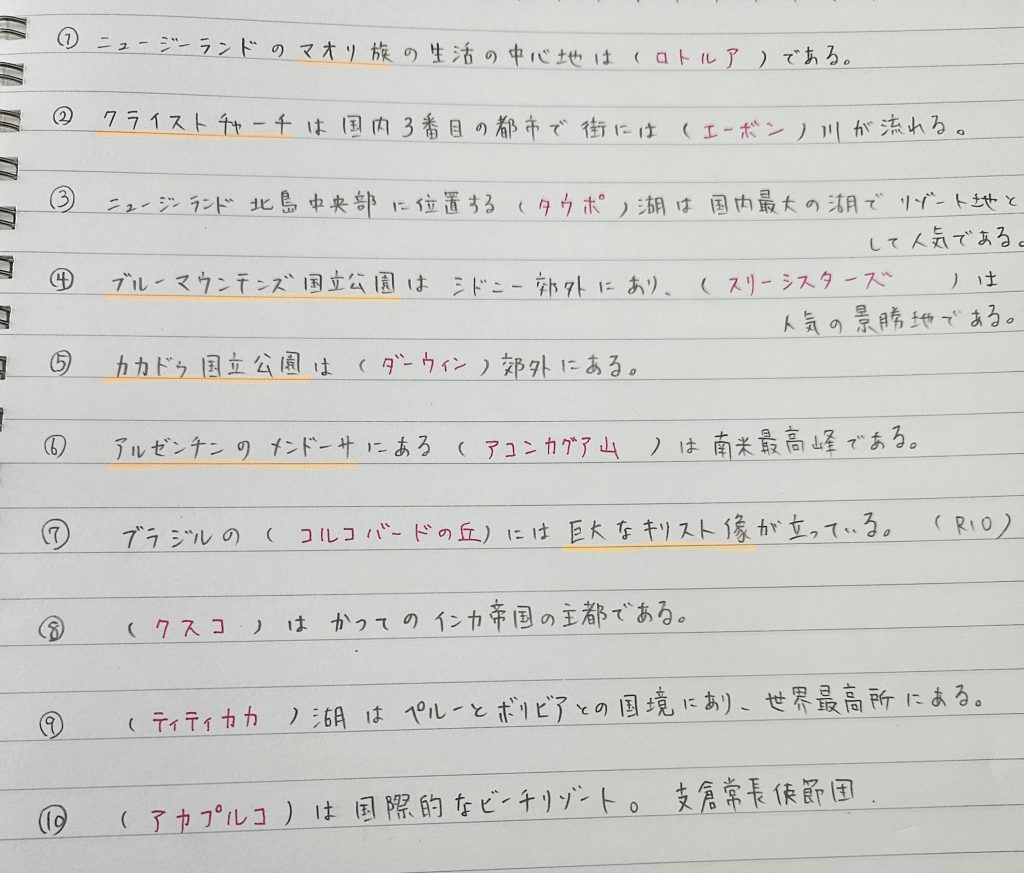 ① ニュージーランドのマオリ族の生活の中心地は（ロトルア）である。
② クライストチャーチは国内3番目の都市で街には（エーボン）川が流れる。
③ ニュージーランド北島中央部に位置する（タウポ）湖は国内最大の湖でリゾート地と
して人気である。
④ ブルーマウンテンズ国立公園はシドニー郊外にあり、（スリーシスターズ）は
人気の景勝地である。
⑤ カカドゥ国立公園は（ダーウィン）郊外にある。
⑥ アルゼンチンのメンドーサにある（アコンカグア山）は南米最高峰である。
⑦ ブラジルの（コルコバードの丘）には巨大なキリスト像が立っている。（RIO）
⑧ （クスコ）はかつてのインカ帝国の主都である。
⑨ （ティティカカ）湖はペルーとボリビアとの国境にあり、世界最高所にある。
⑩ （アカプルコ）は国際的なビーチリゾート。支倉常長使節団.